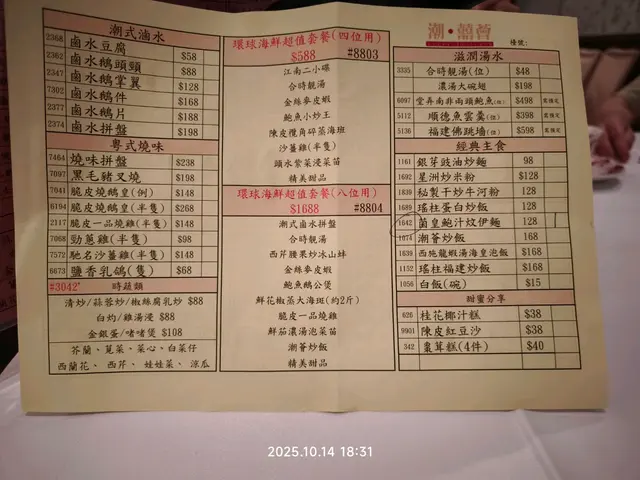 潮式滷水
2368 滷水豆腐 $58
2362 滷水鵝頭頸 $88
2347 滷水鵝掌翼 $128
7302 滷水鵝件 $168
2377 滷水鵝片 $188
2374 滷水拼盤 $198
粵式燒味
7464 燒味拼盤 $238
7097 黑毛豬叉燒 $198
7041 脆皮燒鵝皇(例) $148
6194 脆皮燒鵝皇(半隻) $268
2117 脆皮一品燒雞(半隻) $148
7068 勁蔥雞(半隻) $98
7572 馳名沙薑雞(半隻) $148
6673 鹽香乳鴿(隻) $68
#3042* 時蔬類
清炒/蒜蓉炒/椒絲腐乳炒 $88
白灼/雞湯浸 $88
金銀蛋/啫啫煲 $108
芥蘭、莧菜、菜心、白菜仔
西蘭花、西芹、娃娃菜、涼瓜
環球海鮮超值套餐(四位用)
$588 #8803
江南二小碟
合時靚湯
金絲麥皮蝦
鮑魚小炒王
陳皮欖角碎蒸海班
沙薑雞(半隻)
頭水紫菜浸菜苗
精美甜品
環球海鮮超值套餐(八位用)
$1688 #8804
潮式鹵水拼盤
合時靚湯
西芹腰果炒冰山蚌
金絲麥皮蝦
鮑魚鵝公煲
鮮花椒蒸大海斑(約2斤)
脆皮一品燒雞
鮮茄濃湯泡菜苗
潮蒼炒飯
精美甜品
潮·囍薈
檯號:
滋潤湯水
3335 合時靚湯(位) $48
濃湯大碗翅 $198
6097 堂弄南非兩頭鮑魚(位) $498
5112 順德魚雲羹(位) $398
5136 福建佛跳墻(位) $598
經典主食
1161 銀芽豉油炒麵 98
1692 星洲炒米粉 128
1839 秘製干炒牛河粉 128
1689 瑤柱蛋白炒飯 128
1642 菌皇鮑汁炆伊麵 128
1074 潮蒼炒飯 168
1639 西施龍蝦湯海皇泡飯 $168
1152 瑤柱福建炒飯 $168
1056 白飯(碗) $15
甜蜜分享
626 桂花椰汁糕 $38
9901 陳皮紅豆沙 $38
342 棗茸糕(4件) $40
2025.10.14 18:31